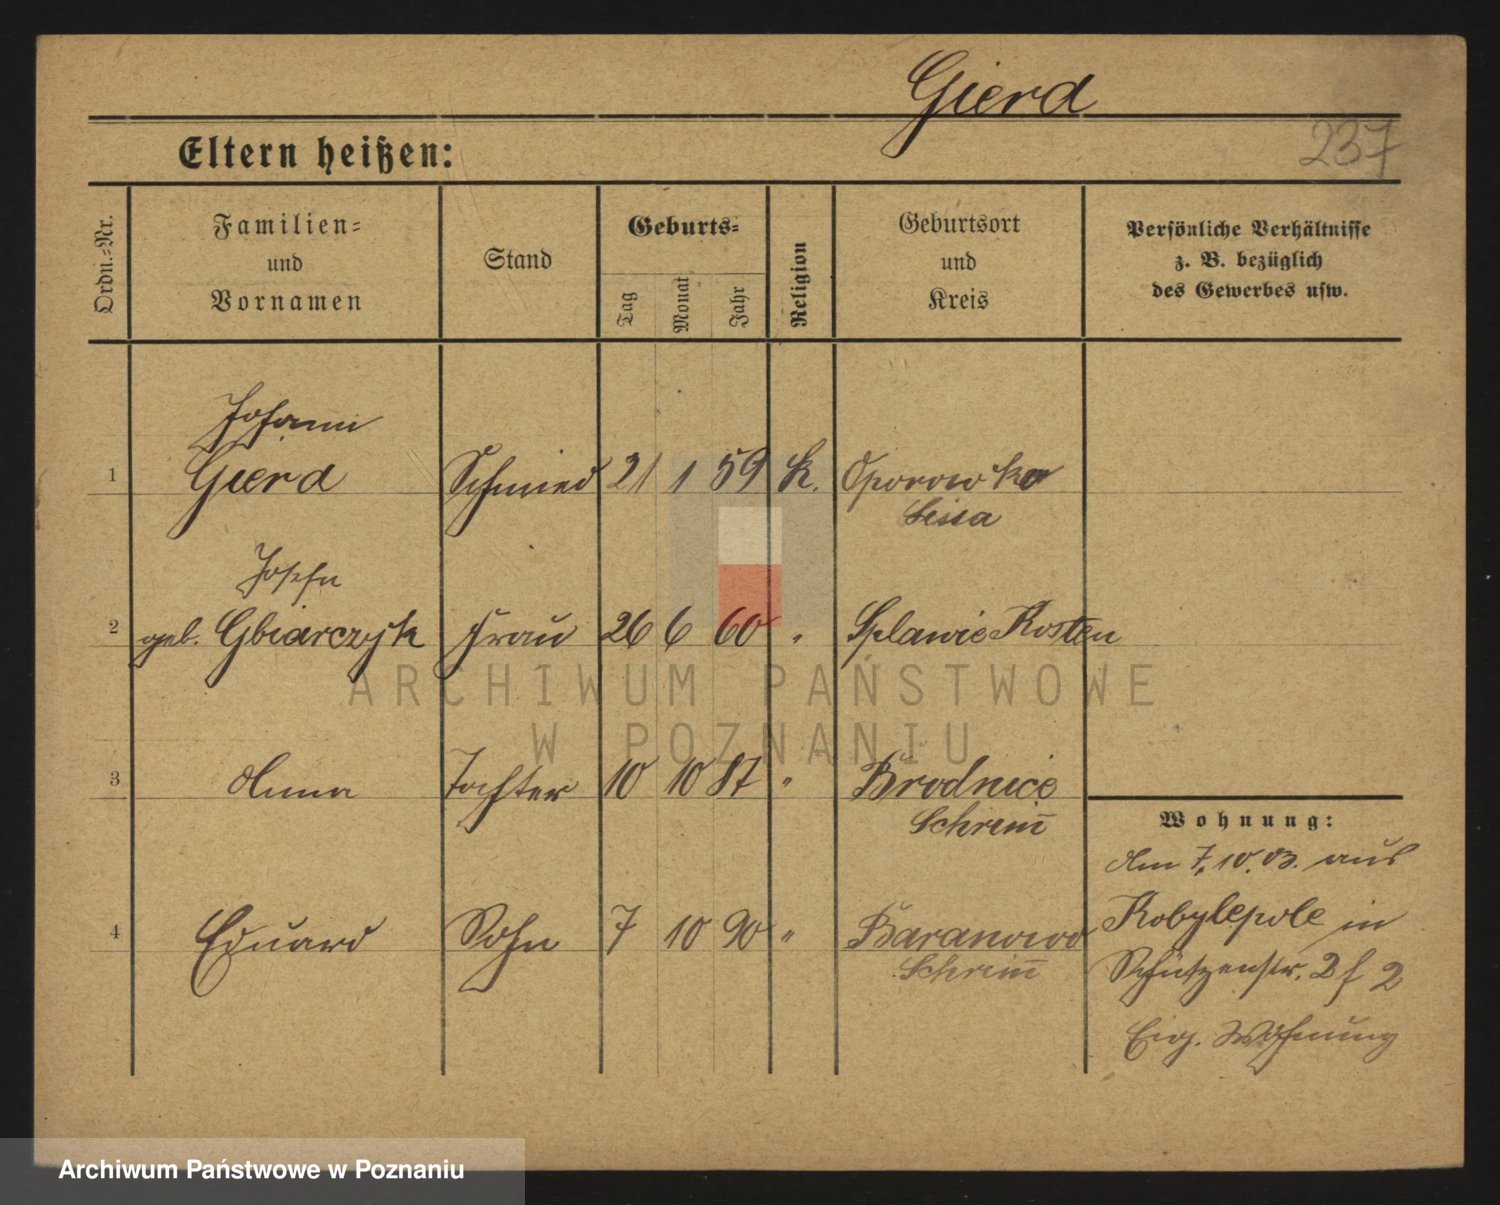 Gierd
237
Eltern heißen:
Ordn.=Nr.
Familien=
und
Vornamen
Stand
Geburts=
Tag
Monat
Jahr
Religion
Geburtsort
und
Kreis
Persönliche Verhältnisse
z. B. bezüglich
des Gewerbes usw.
Johann
1 Gierd Schmied 21 1 59 K. Oporowko
Lissa
Josefa
2 geb. Gbiarczyk Frau 26 6 60 " Splawie Kosten
3 Anna Tochter 10 10 87 " Brodnice
Schrim̅
4 Eduard Sohn 7 10 90 " Baranowo
Schrim̅
Wohnung:
Am 7.10.03. aus
Kobylepole in
Schützenstr. 2 f 2
Eig. Wohnung
ARCHIWUM PAŃSTWOWE
W POZNANIU
Archiwum Państwowe w Poznaniu